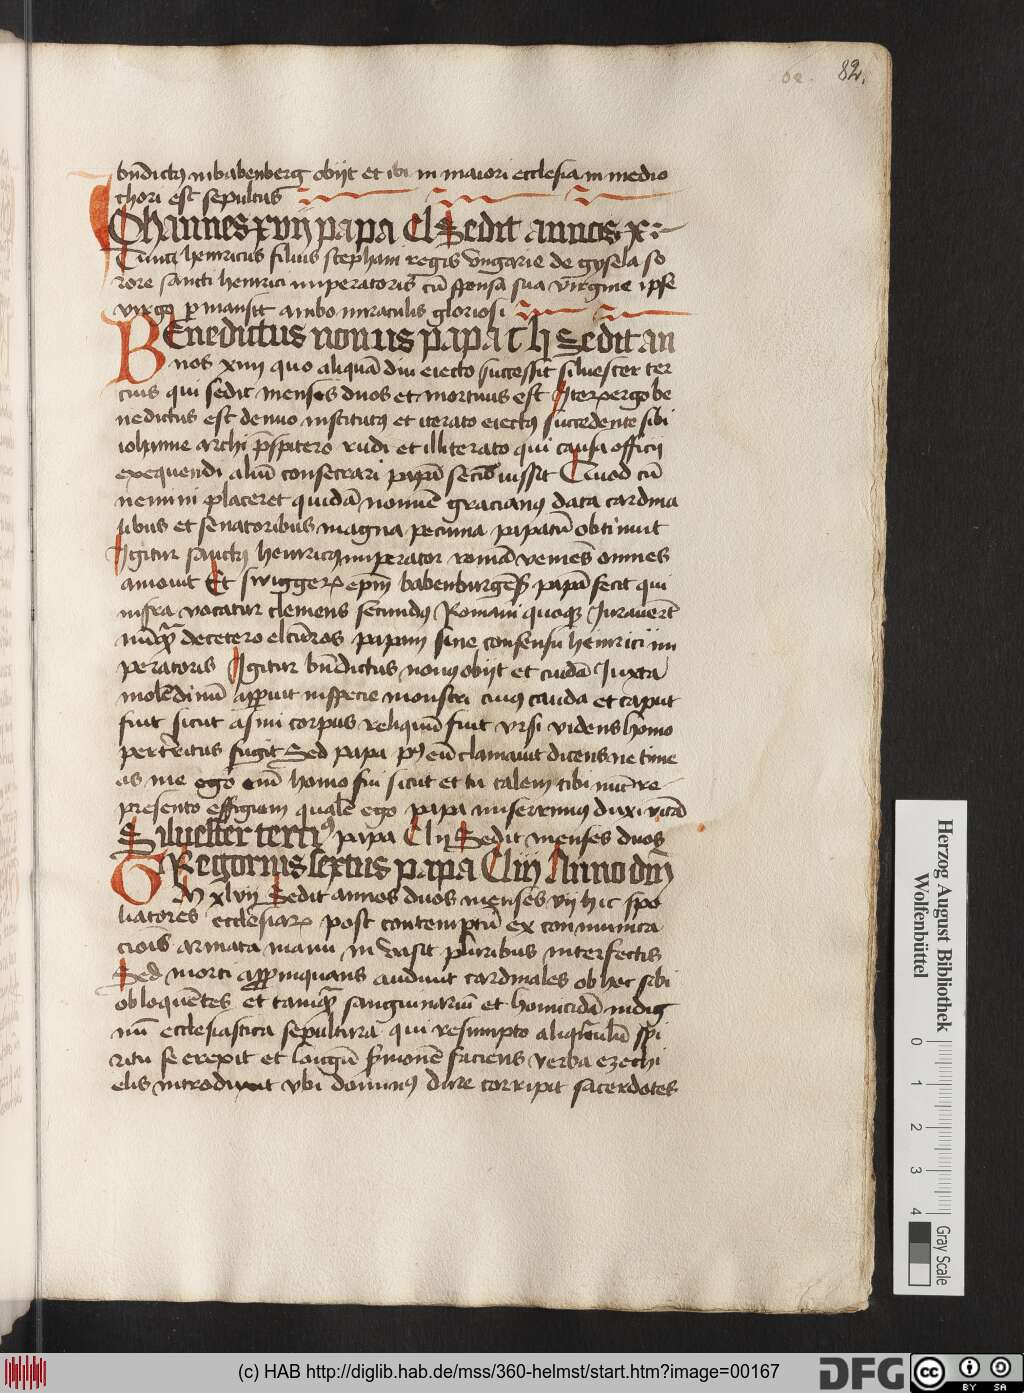 82.
bn̄dictꝰ in babenberg obijt et ibi in maiori ecclesia in medio
chori est sepultus
IOhannes xvij papa Cl Sedit annos x
Cuncti henricus filius stephani regis vngarie de gysela so
rore sancti henrici imperatoris cū sponsa sua virgine ipse
virgo permansit ambo miraculis gloriosi
BEnedictus nonus papa Sedit an
nos xiiij quo aliquādiu eiecto successit siluester ter
cius qui sedit menses duos et mortuus est Iterꝫ ergo be
nedictus est denuo institutꝰ et iterato eiectꝰ succedente sibi
iohanne archipresp̄itero rudi et illiterato qui causa officij
exequendi aliū consecrari papā secū iussit Quod cū
nemini placeret quidā nomīe gracianꝰ data cardina
libus et senatoribus magna pecunia papatū obtinuit
Igitur sanctꝰ henricꝰ imperator romā veniēs omnes
amouit Et swiggerꝫ epm̄ babenburgēs papā fecit qui
infra vocatur clemens secundꝰ Romani quoqꝫ Iurauerūt
nūqꝫ decetero electuros papam sine consensu henrici im
peratoris Igitur bn̄dictus nonꝰ obijt et cuidā Iuxta
molēdinū apparuit in specie monstri cuiꝰ cauda et caput
fuit sicut asini corpus reliquū fuit vrsi videns homo
perterritus fugit Sed papa pꝰ eū clamauit dicens ne time
as me ego em̄ homo fui sicut et tu talem tibi nūc re
presento effigiem qualē ego papa miserrimus duxi vitā
Siluester tertiꝰ papa Clij Sedit menses duos
GRegorius sextus papa Cliij Anno dm̄
M xlvij Sedit annos duos menses vij hic spo
liatores ecclesiarꝫ post contemptū excommunica
cionis armata manu inuasit pluribus interfectis
Sed morti appropinquans audiuit cardinales ob hoc sibi
obloquētes et tamqꝫ sanguinariū et homicidā indig
nū ecclesiastica sepultura qui resumpto aliqntulū spi
ritu se erexit et longū sermonē faciens verba ezechi
elis introduxit vbi dominꝰ dure corripit sacerdotes
Herzog August Bibliothek
Wolfenbüttel
0 1 2 3 4
Gray Scale
(c) HAB http://diglib.hab.de/mss/360-helmst/start.htm?image=00167
DFG
cc BY SA